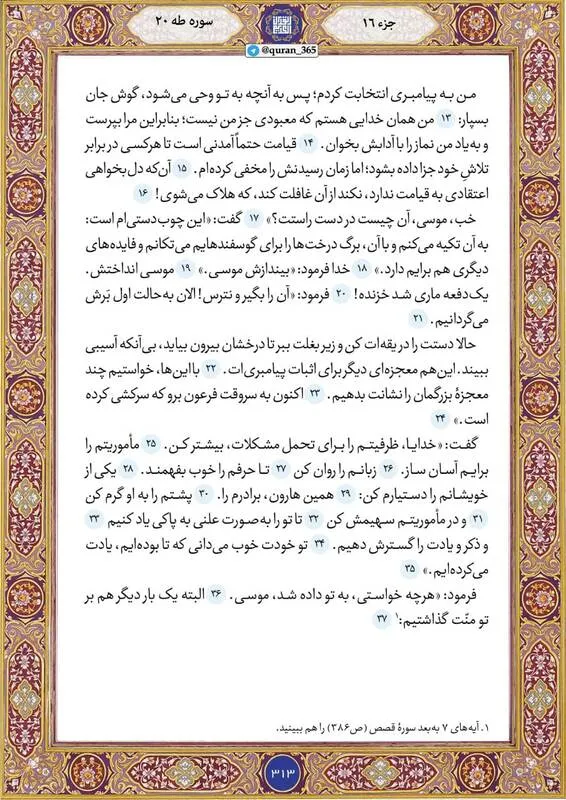 جزء ۱۶
سوره طه ۲۰
@quran_365
من به پیامبری انتخابت کردم؛ پس به آنچه به تو وحی می‌شود، گوش جان
بسپار: ۱۳ من همان خدایی هستم که معبودی جز من نیست؛ بنابراین مرا بپرست
و به‌یاد من نماز را با آدابش بخوان. ۱۴ قیامت حتماً آمدنی است تا هرکسی در برابر
تلاشِ خود جزا داده بشود؛ اما زمان رسیدنش را مخفی کرده‌ام. ۱۵ آن‌که دل‌بخواهی
اعتقادی به قیامت ندارد، نکند از آن غافلت کند، که هلاک می‌شوی! ۱۶
خب، موسی، آن چیست در دست راستت؟» ۱۷ گفت: «این چوب‌دستی‌ام است:
به آن تکیه می‌کنم و با آن، برگ درخت‌ها را برای گوسفندهایم می‌تکانم و فایده‌های
دیگری هم برایم دارد.» ۱۸ خدا فرمود: «بیندازش موسی.» ۱۹ موسی انداختش.
یک‌دفعه ماری شد خزنده! ۲۰ فرمود: «آن را بگیر و نترس! الان به‌حالت اول بَرش
می‌گردانیم. ۲۱
حالا دستت را در یقه‌ات کن و زیر بغلت ببر تا درخشان بیرون بیاید، بی‌آنکه آسیبی
ببیند. این‌هم معجزه‌ای دیگر برای اثبات پیامبری‌ات. ۲۲ با این‌ها، خواستیم چند
معجزهٔ بزرگمان را نشانت بدهیم. ۲۳ اکنون به سروقت فرعون برو که سرکشی کرده
است.» ۲۴
گفت: «خدایا، ظرفیتم را برای تحمل مشکلات، بیشتر کن. ۲۵ مأموریتم را
برایم آسان ساز. ۲۶ زبانم را روان کن ۲۷ تا حرفم را خوب بفهمند. ۲۸ یکی از
خویشانم را دستیارم کن: ۲۹ همین هارون، برادرم را. ۳۰ پشتم را به او گرم کن
۳۱ و در مأموریتم سهیمش کن ۳۲ تا تو را به‌صورت علنی به پاکی یاد کنیم ۳۳
و ذکر و یادت را گسترش دهیم. ۳۴ تو خودت خوب می‌دانی که تا بوده‌ایم، یادت
می‌کرده‌ایم.» ۳۵
فرمود: «هرچه خواستی، به تو داده شد، موسی. ۳۶ البته یک بار دیگر هم بر
تو منّت گذاشتیم:۱ ۳۷
۱. آیه‌های ۷ به‌بعد سورهٔ قصص (ص۳۸۶) را هم ببینید.
۳۱۳